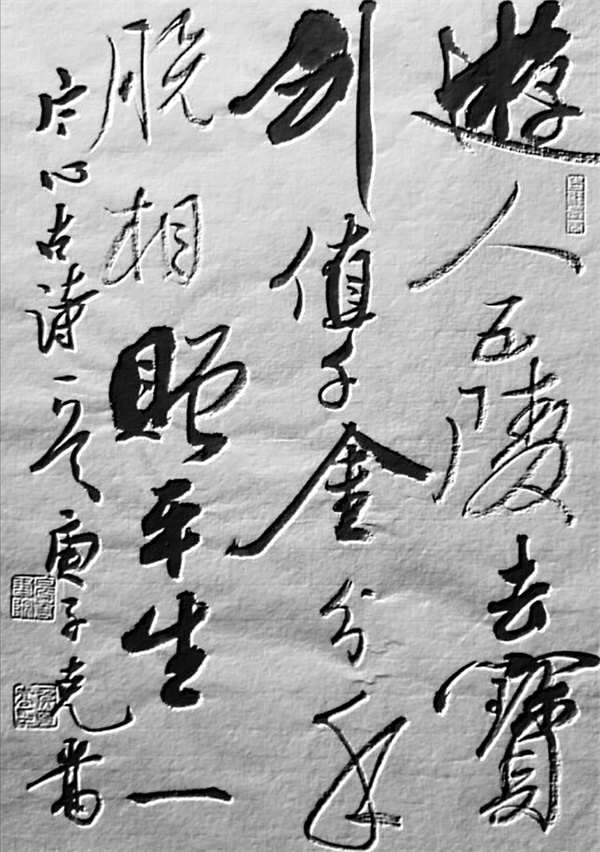 遊人五陵去寶
劍值千金分手
脫相贈平生一
片心古詩一首庚子克